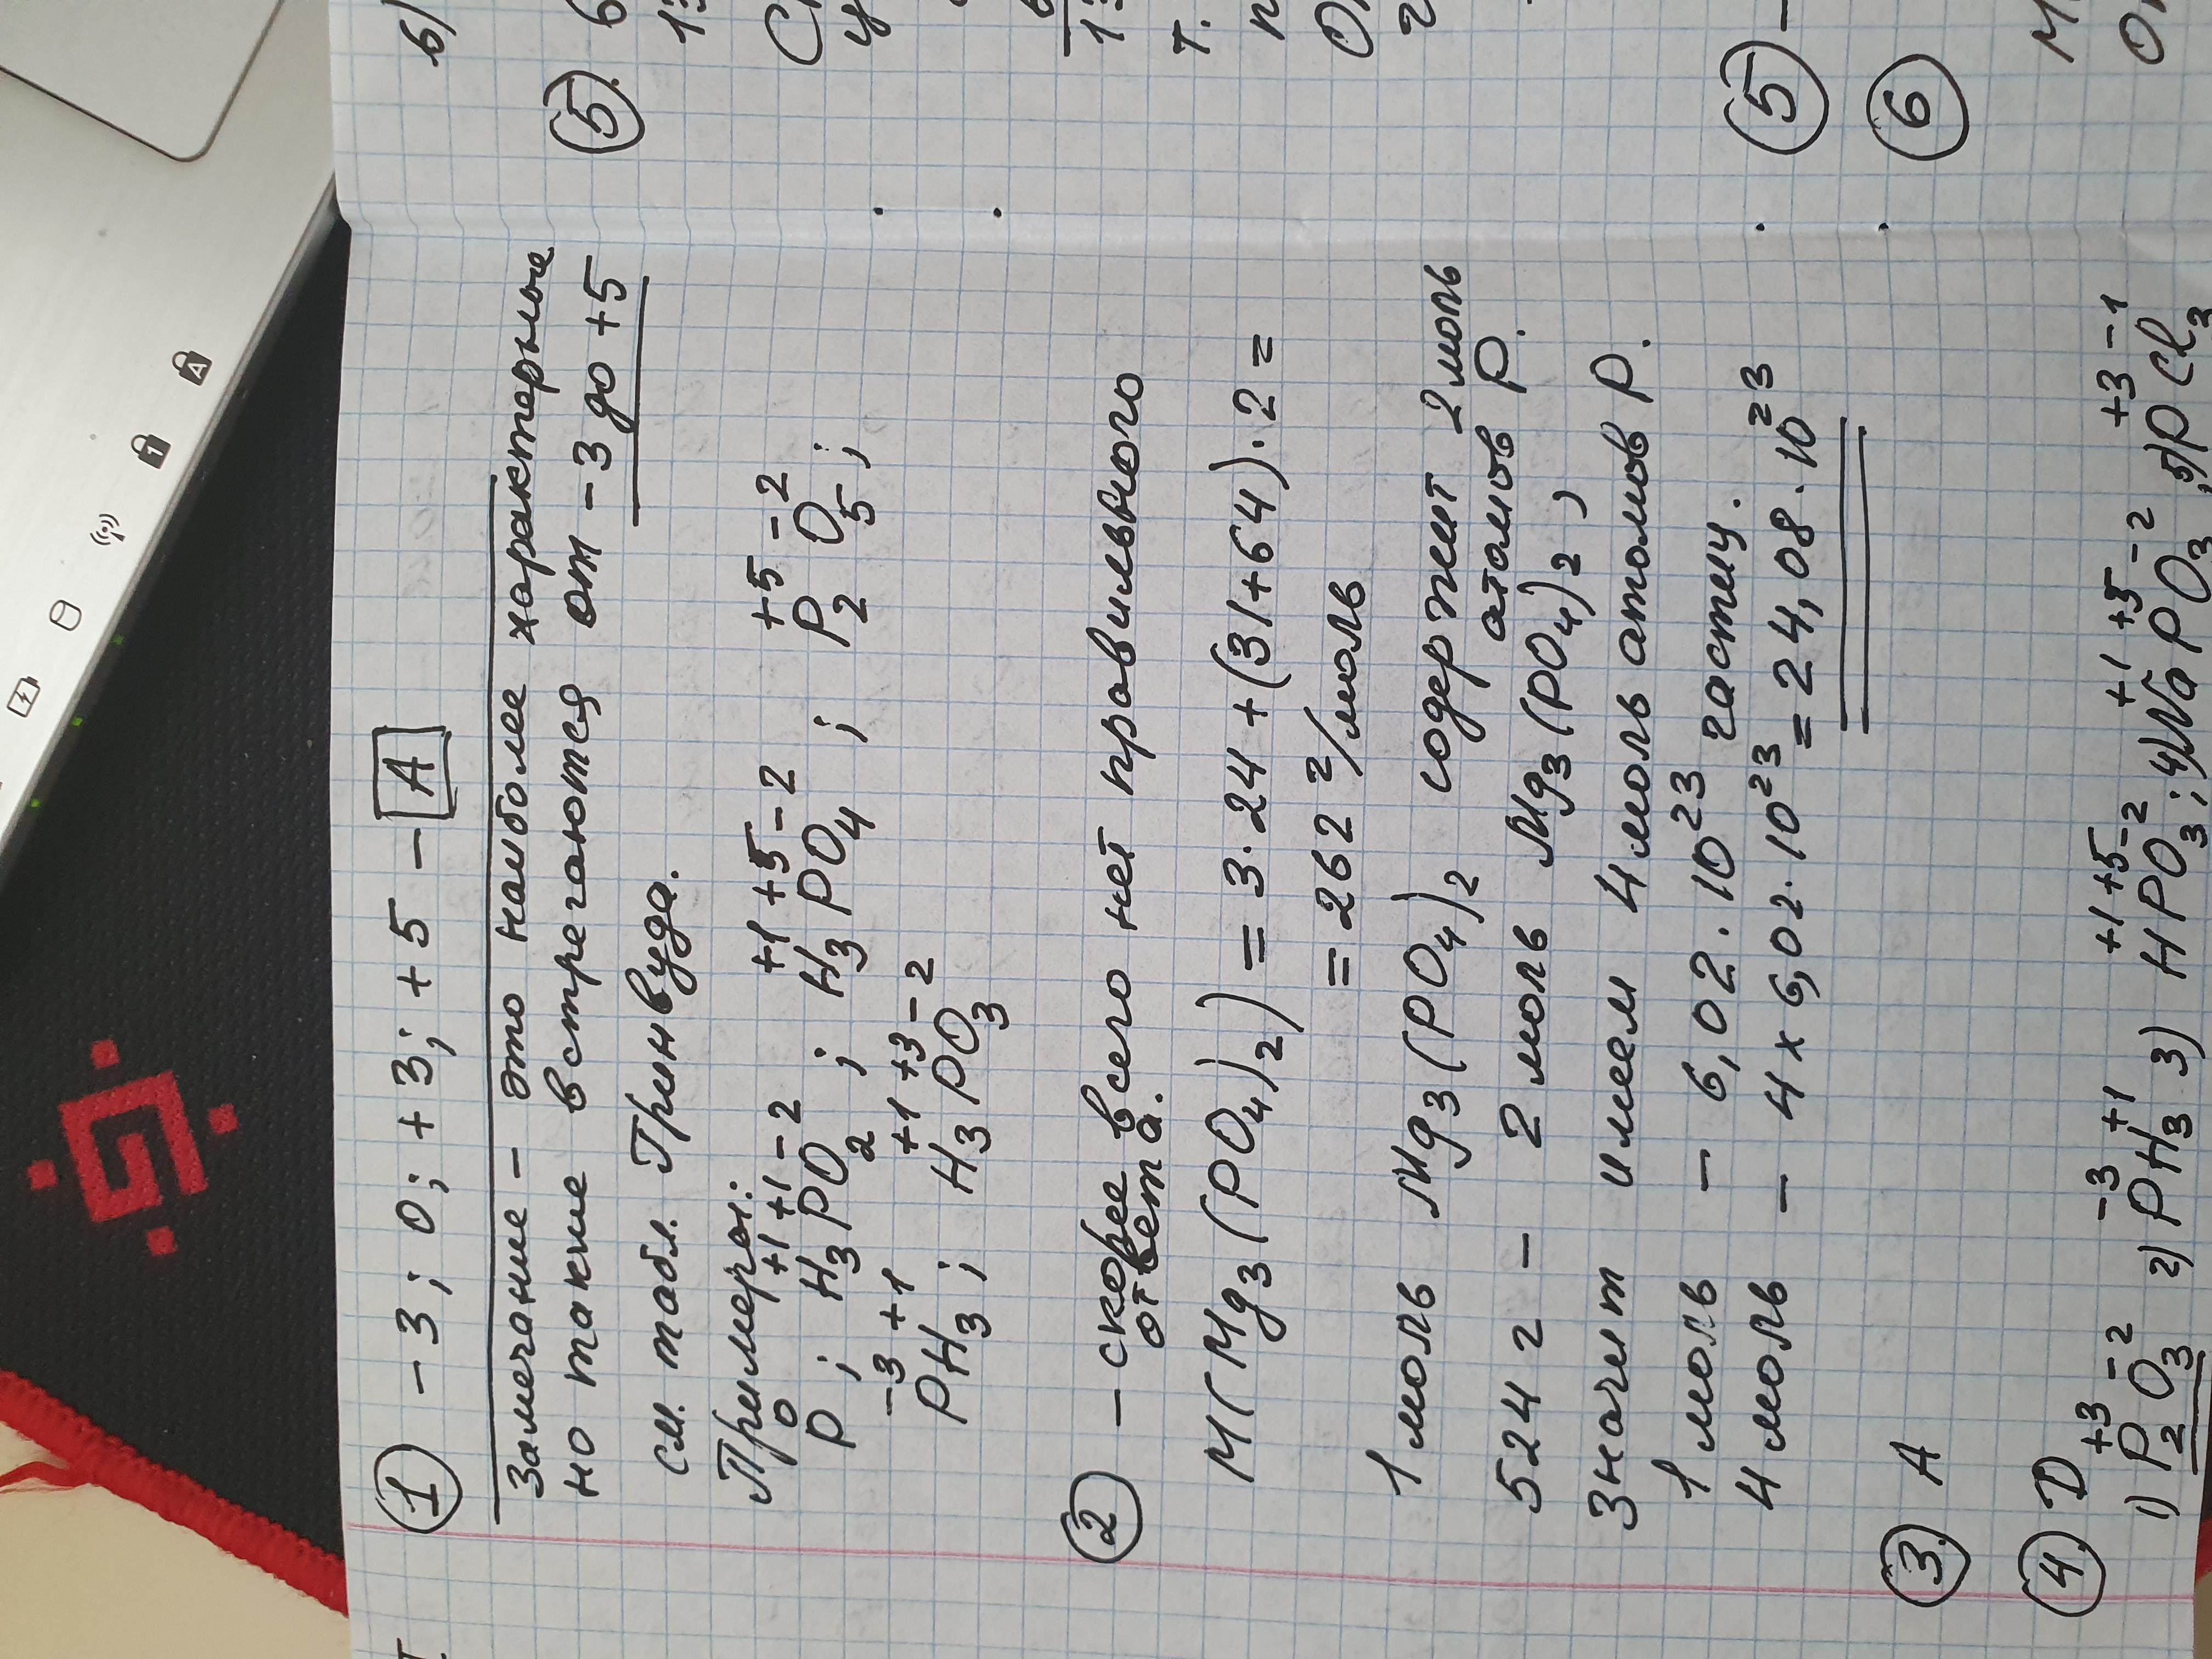 ① -3; 0; +3; +5 - А
Замечание - это наиболее характерные
но также встречаются от -3 до +5
см. табл. Гринвуда.
Примеры:
0 +1 +1 -2 +1 +5 -2 +5 -2
P; H3PO2; H3PO4; P2O5;
-3 +1 +1 +3 -2
PH3; H3PO3
② - скорее всего нет правильного
ответа.
M(Mg3(PO4)2) = 3·24+(31+64)·2=
=262 г/моль
1 моль Mg3(PO4)2 содержит 2 моль
атомов P.
524 г - 2 моль Mg3(PO4)2,
значит имеем 4 моль атомов P.
1 моль - 6,02·10²³ частиц.
4 моль - 4×6,02·10²³=24,08·10²³
③. А
④. D
+3 -2 -3 +1 +1 +5 -2 +1 +5 -2 +3 -1
1) P2O3 2) PH3 3) HPO3; 4) NaPO3, 5) PCl3
б)
⑤.
⑤ -
⑥